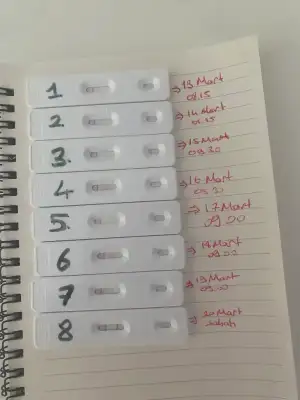 1
→ 13 Mart
09.15
2
→ 14 Mart
09.15
3.
→ 15 Mart
09.30
4
→ 16 Mart
09.30
5.
→ 17 Mart
09.00
6
→ 18 Mart
09.00
7
→ 19 Mart
09.00
8
→ 20 Mart
sabah